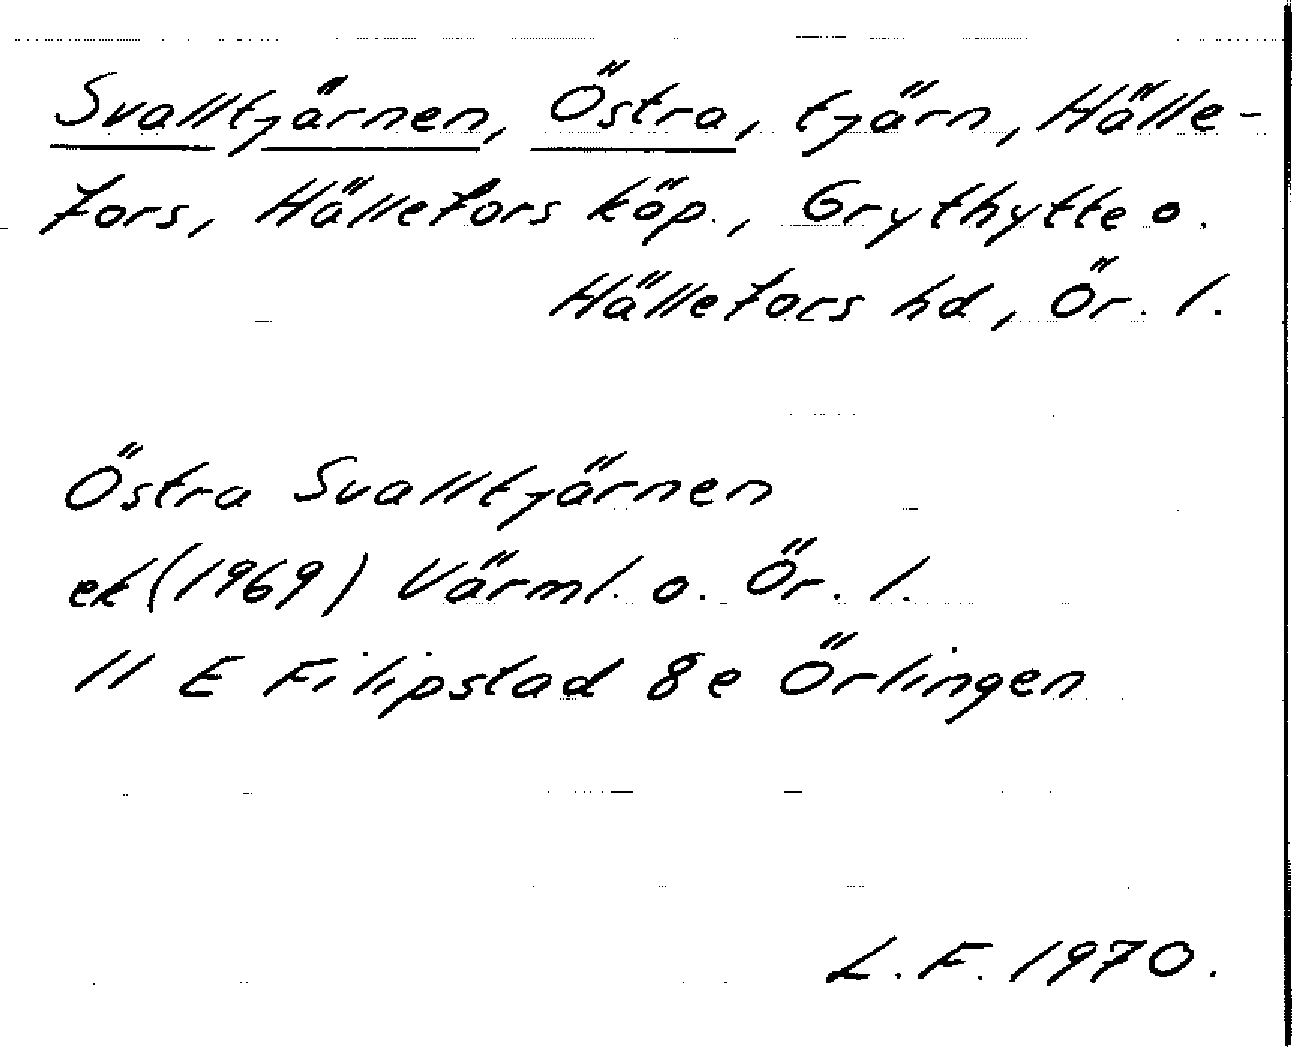 Svalltjärnen, Östra, tjärn, Hälle-
fors, Hällefors köp., Grythytte o.
Hällefors hd, Ör. l.
Östra Svalltjärnen
ek (1969) Värml. o. Ör. l.
11 E Filipstad 8e Örlingen
L. F. 1970.